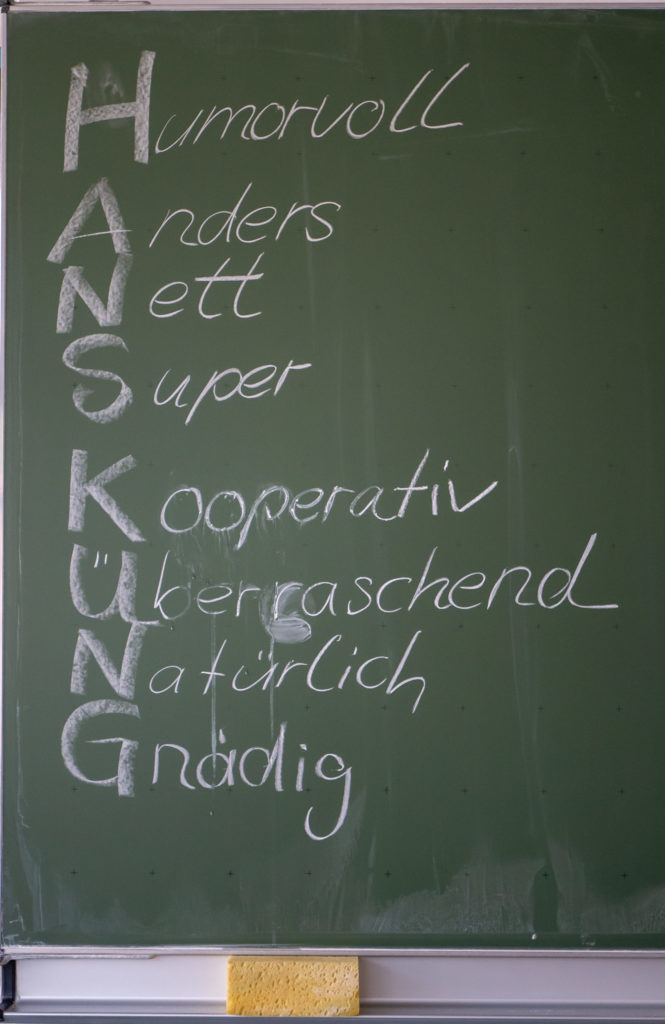 Humorvoll
Anders
Nett
Super
Kooperativ
Überraschend
Natürlich
Gnädig